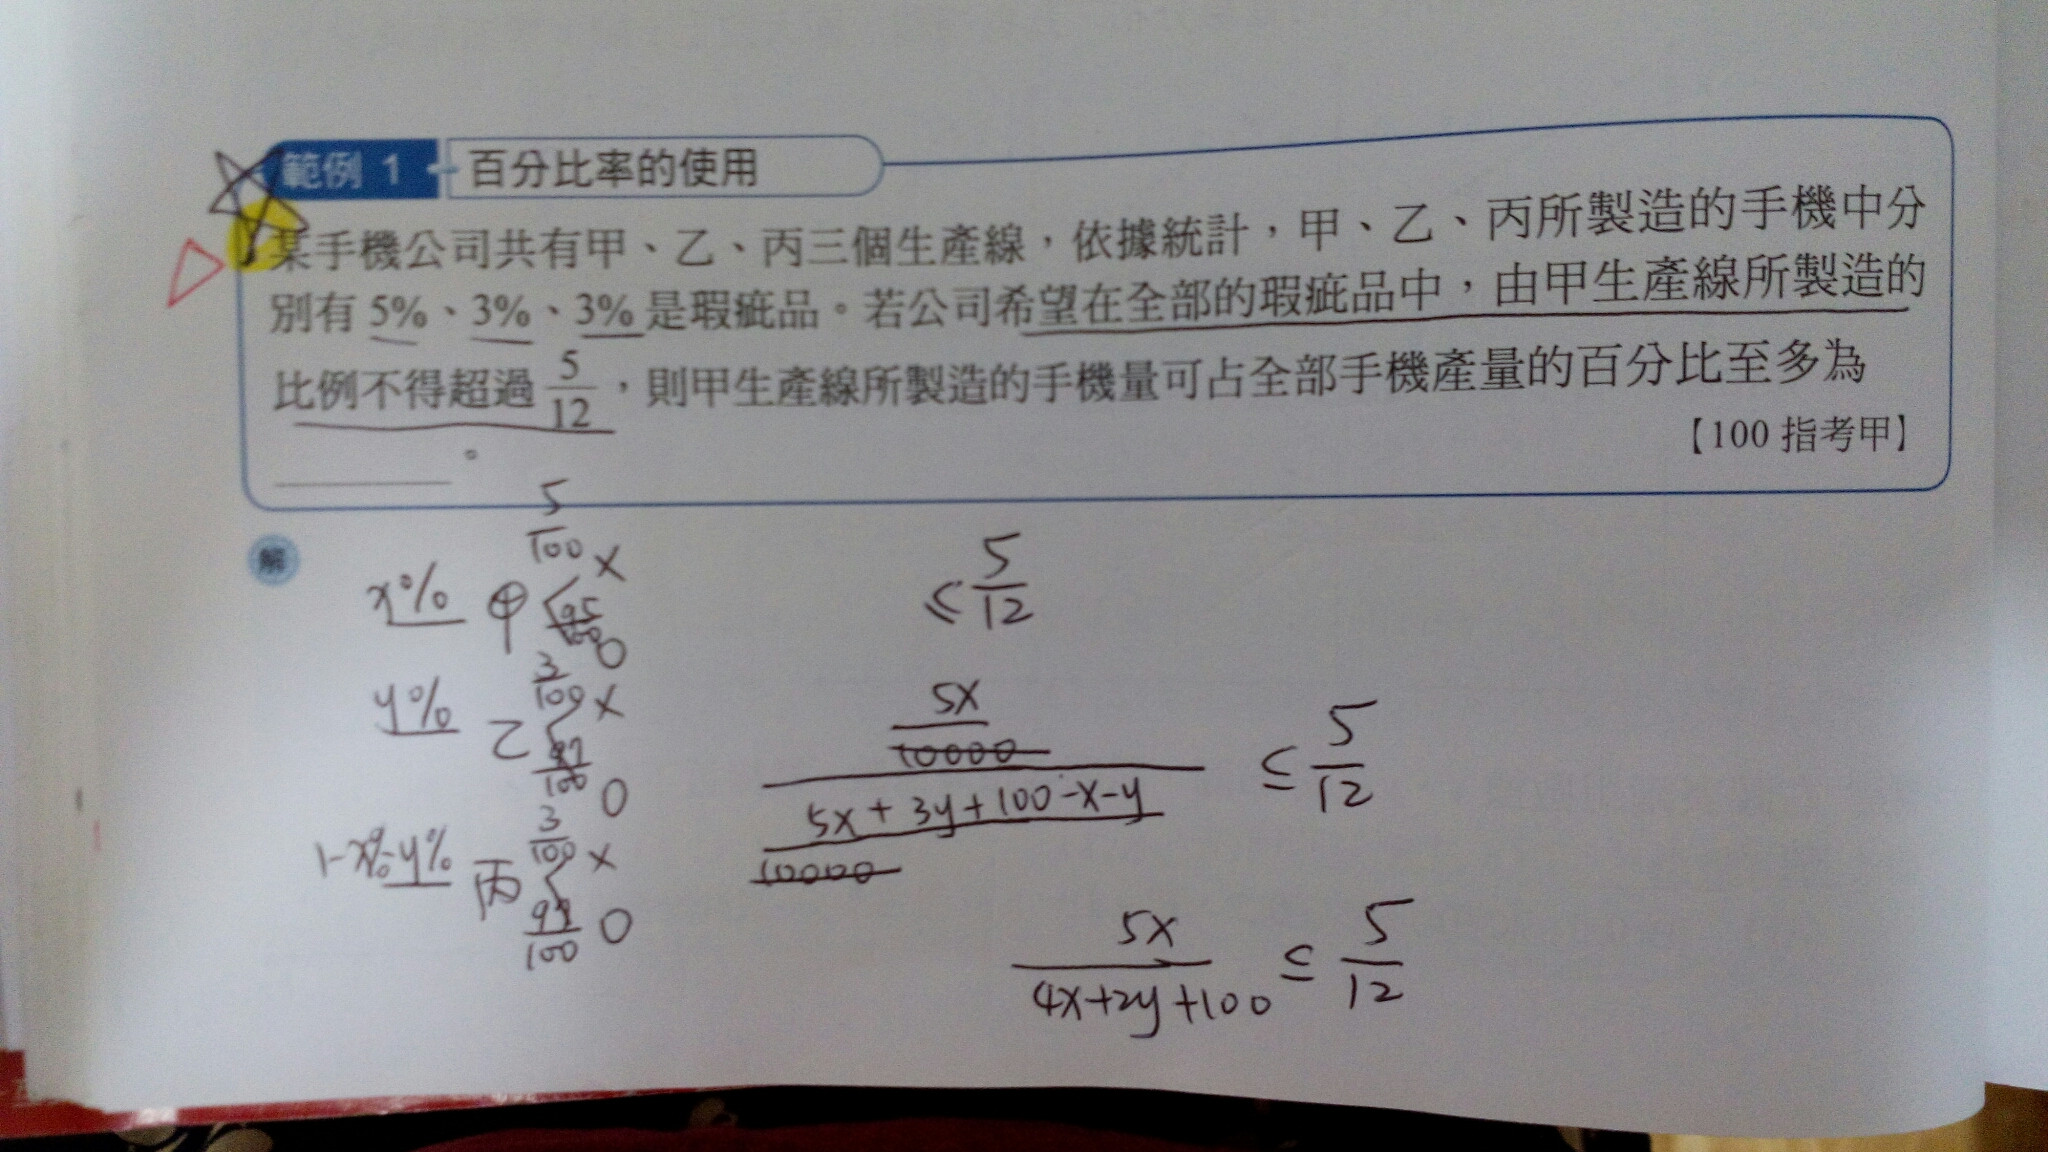 範例 1 百分比率的使用
某手機公司共有甲、乙、丙三個生產線，依據統計，甲、乙、丙所製造的手機中分
別有 5%、3%、3% 是瑕疵品。若公司希望在全部的瑕疵品中，由甲生產線所製造的
比例不得超過 5/12，則甲生產線所製造的手機量可占全部手機產量的百分比至多為
______。
【100 指考甲】
解
x% 甲 5/100 X
95/100 O
y% 乙 3/100 X
97/100 O
1-x%-y% 丙 3/100 X
99/100 O
≤ 5/12
5x/10000
5x+3y+100-x-y/10000 ≤ 5/12
5x/4x+2y+100 ≤ 5/12